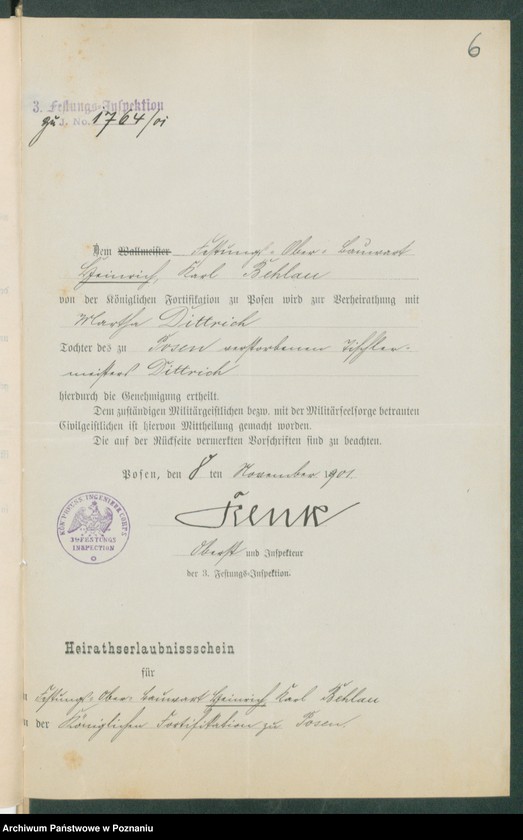 6
3. Festungs-Inspektion
zu J. No. 1764/01
Dem Wallmeister Festungs-Ober-Bauwart
Heinrich, Karl Behlau
von der Königlichen Fortifikation zu Posen wird zur Verheirathung mit
Martha Dittrich
Tochter des zu Posen verstorbenen Tischler-
meisters Dittrich
hierdurch die Genehmigung ertheilt.
Dem zuständigen Militärgeistlichen bezw. mit der Militärseelsorge betrauten
Civilgeistlichen ist hiervon Mittheilung gemacht worden.
Die auf der Rückseite vermerkten Vorschriften sind zu beachten.
Posen, den 8 ten November 1901.
KÖN. PREUSS. INGENIEUR CORPS
3te FESTUNGS
INSPECTION
Oberst und Inspekteur
der 3. Festungs-Inspektion.
Heirathserlaubnissschein
für
Festungs-Ober-Bauwart Heinrich Karl Behlau
der Königlichen Fortifikation zu Posen.
Archiwum Państwowe w Poznaniu